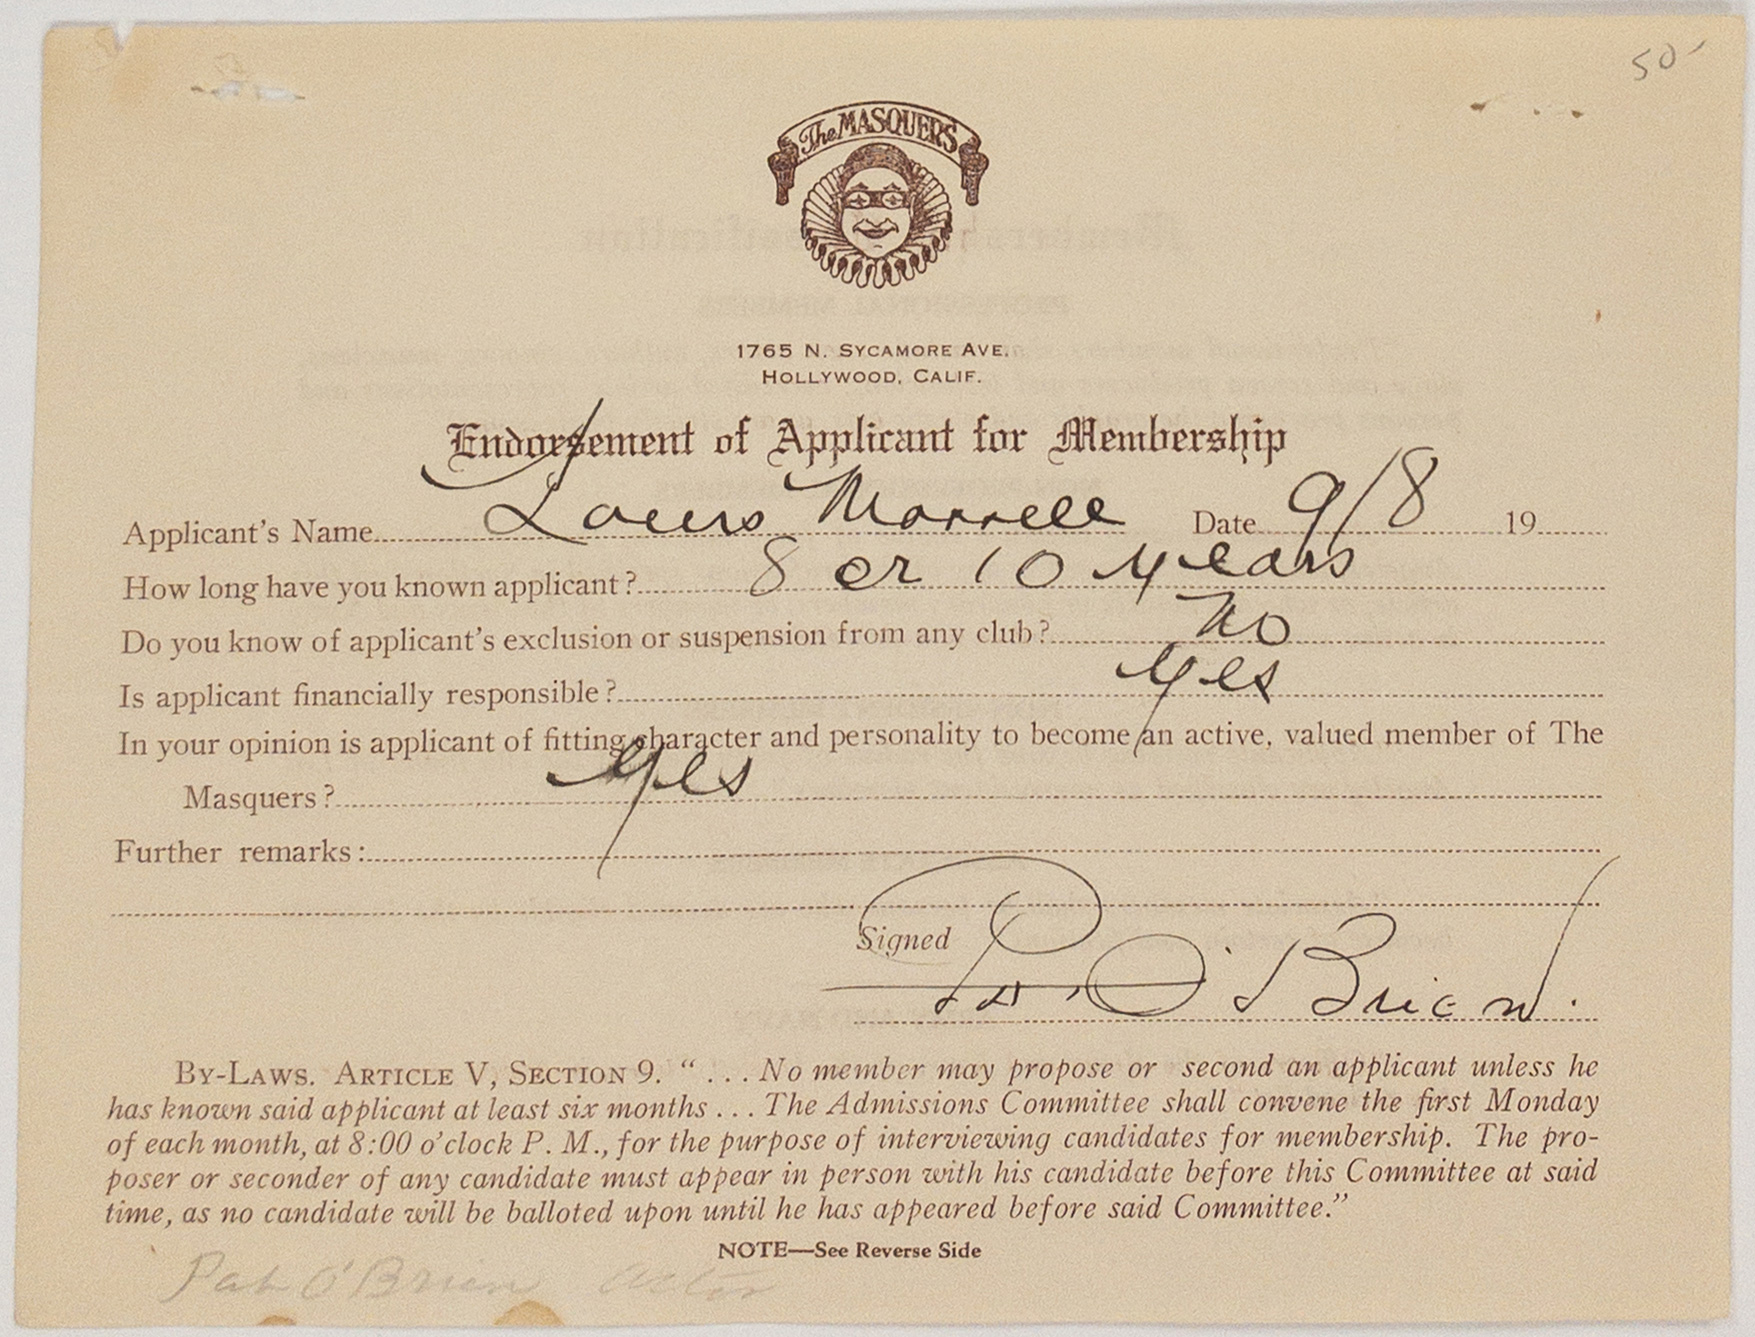 50
The MASQUERS
1765 N. SYCAMORE AVE.
HOLLYWOOD, CALIF.
Endorsement of Applicant for Membership
Applicant's Name Louis Morrell Date 9/8 19
How long have you known applicant? 8 or 10 years
Do you know of applicant's exclusion or suspension from any club? No
Is applicant financially responsible? Yes
In your opinion is applicant of fitting character and personality to become an active, valued member of The
Masquers? Yes
Further remarks:
Signed
Pat O'Brien.
BY-LAWS. ARTICLE V, SECTION 9. "... No member may propose or second an applicant unless he
has known said applicant at least six months ... The Admissions Committee shall convene the first Monday
of each month, at 8:00 o'clock P. M., for the purpose of interviewing candidates for membership. The pro-
poser or seconder of any candidate must appear in person with his candidate before this Committee at said
time, as no candidate will be balloted upon until he has appeared before said Committee."
NOTE—See Reverse Side
Pat O'Brien actor